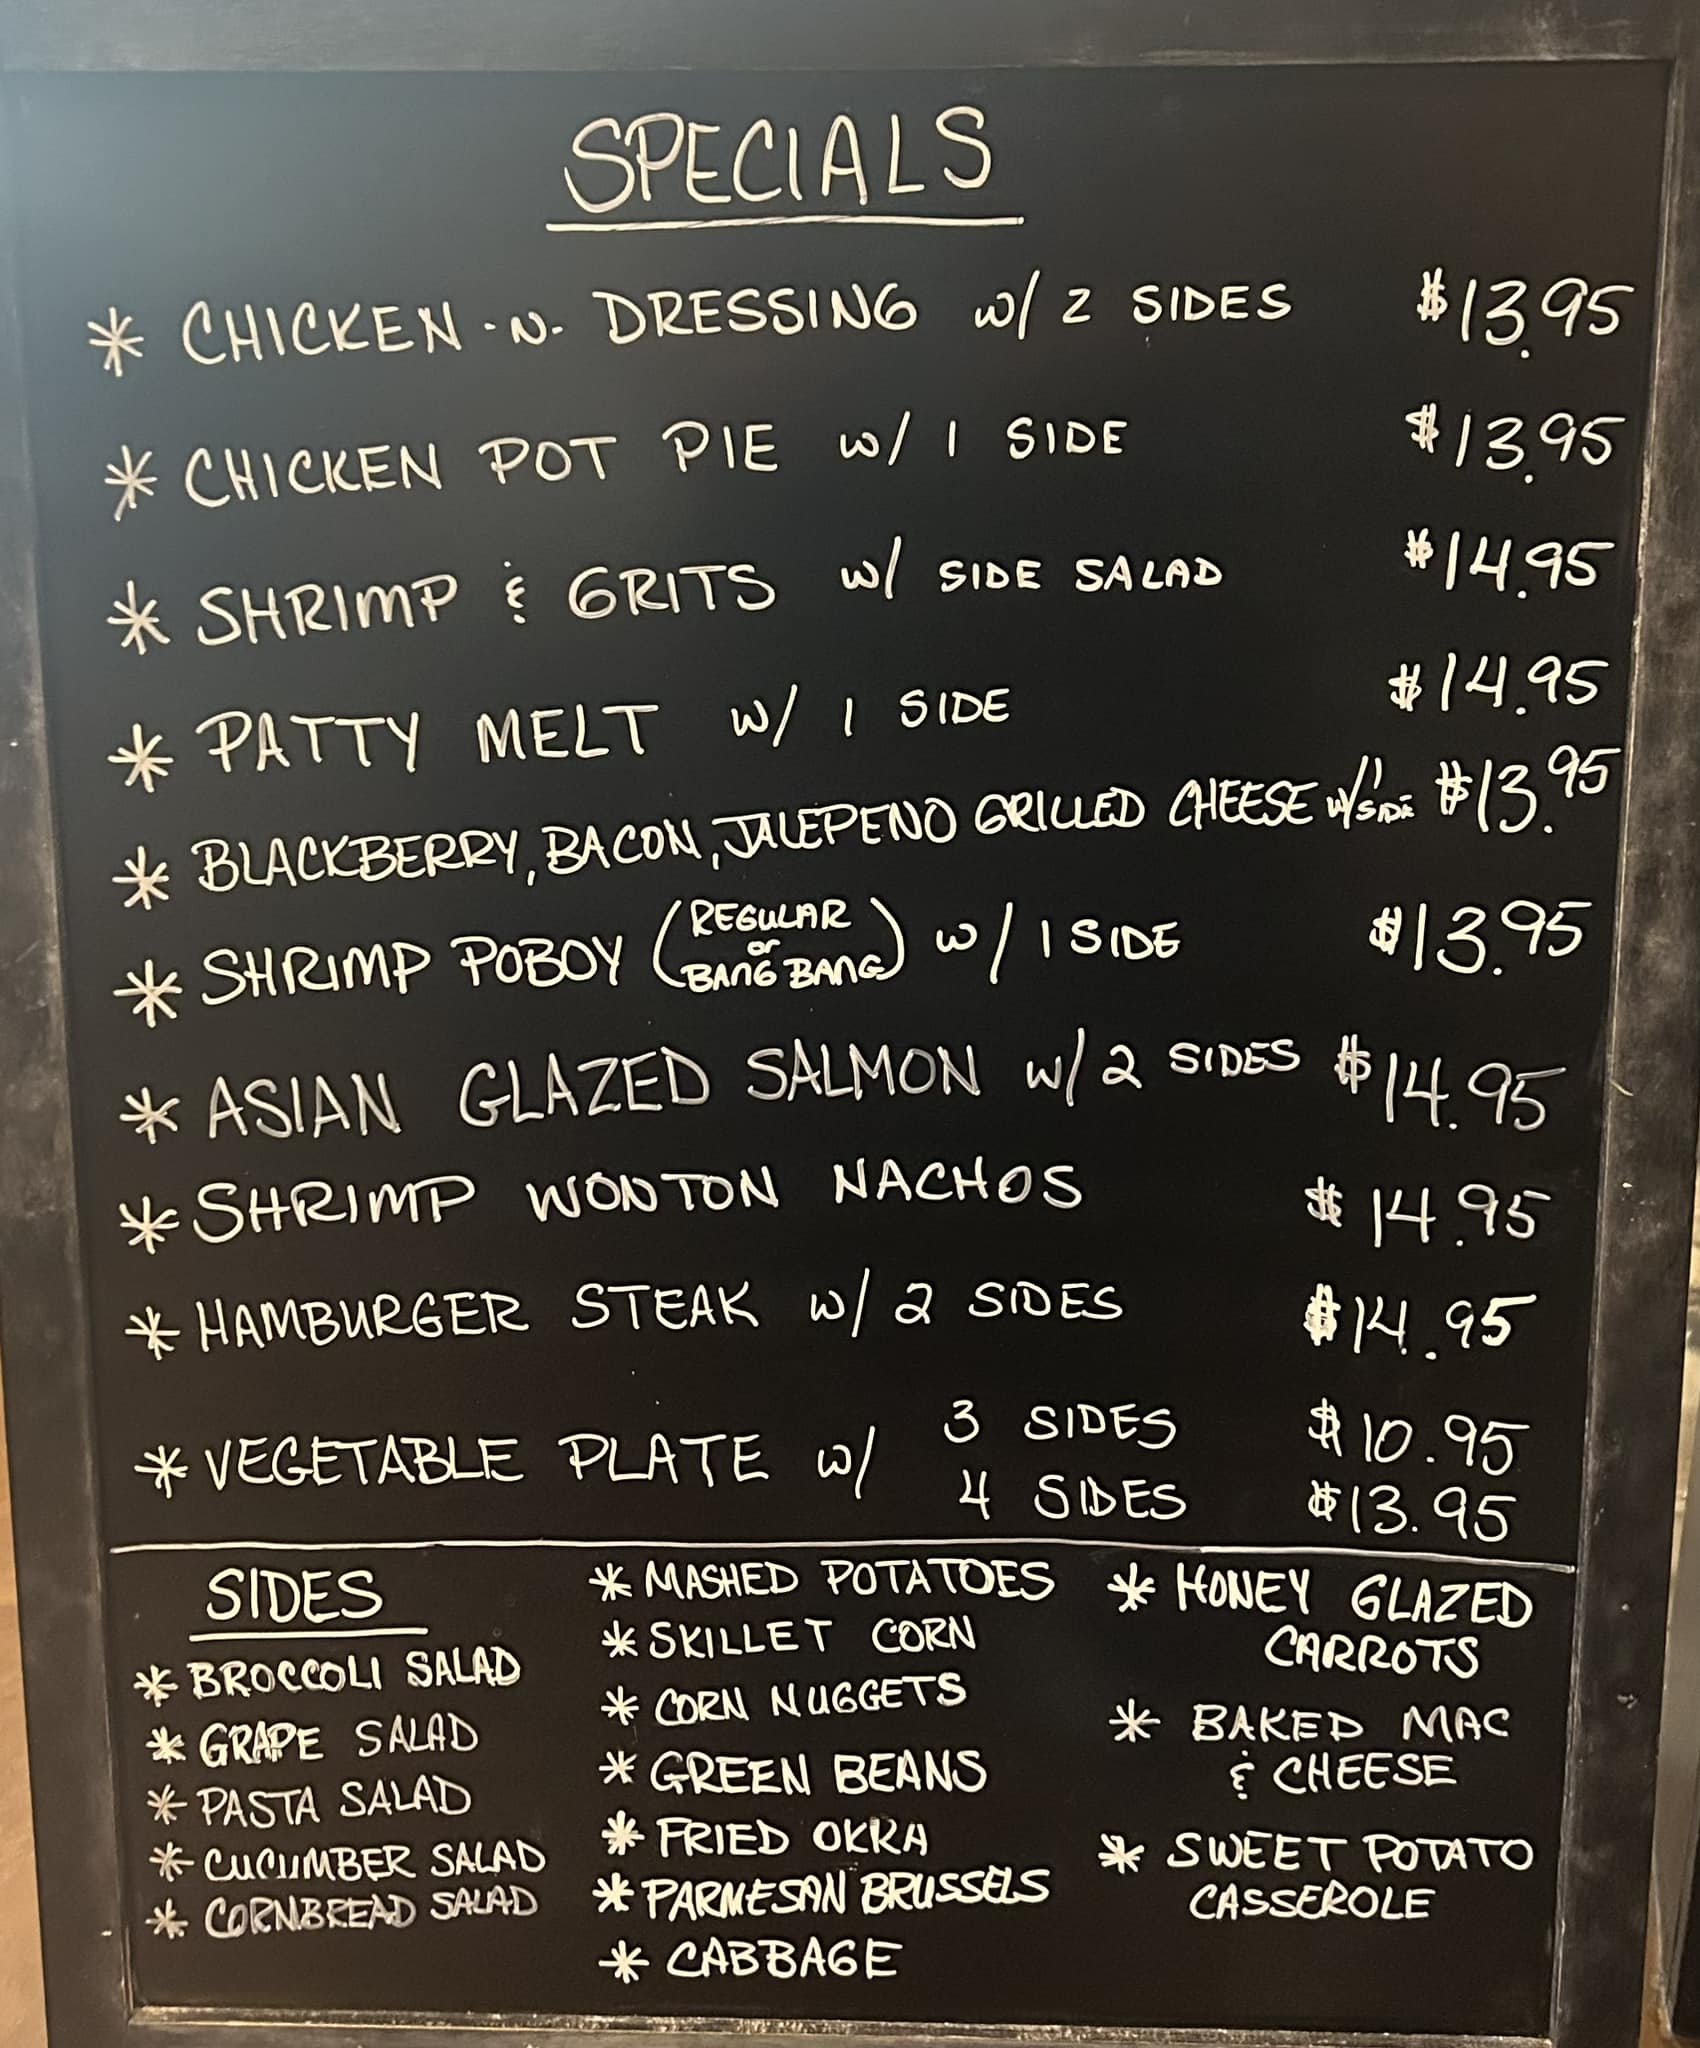 SPECIALS
* CHICKEN -N- DRESSING w/ 2 SIDES $13.95
* CHICKEN POT PIE w/ 1 SIDE $13.95
* SHRIMP & GRITS w/ SIDE SALAD $14.95
* PATTY MELT w/ 1 SIDE $14.95
* BLACKBERRY, BACON, JALEPENO GRILLED CHEESE w/ 1 SIDE $13.95
* SHRIMP POBOY (REGULAR or BANG BANG) w/ 1 SIDE $13.95
* ASIAN GLAZED SALMON w/ 2 SIDES $14.95
* SHRIMP WONTON NACHOS $14.95
* HAMBURGER STEAK w/ 2 SIDES $14.95
* VEGETABLE PLATE w/ 3 SIDES $10.95
4 SIDES $13.95
SIDES
* BROCCOLI SALAD
* GRAPE SALAD
* PASTA SALAD
* CUCUMBER SALAD
* CORNBREAD SALAD
* MASHED POTATOES
* SKILLET CORN
* CORN NUGGETS
* GREEN BEANS
* FRIED OKRA
* PARMESAN BRUSSELS
* CABBAGE
* HONEY GLAZED
CARROTS
* BAKED MAC
& CHEESE
* SWEET POTATO
CASSEROLE